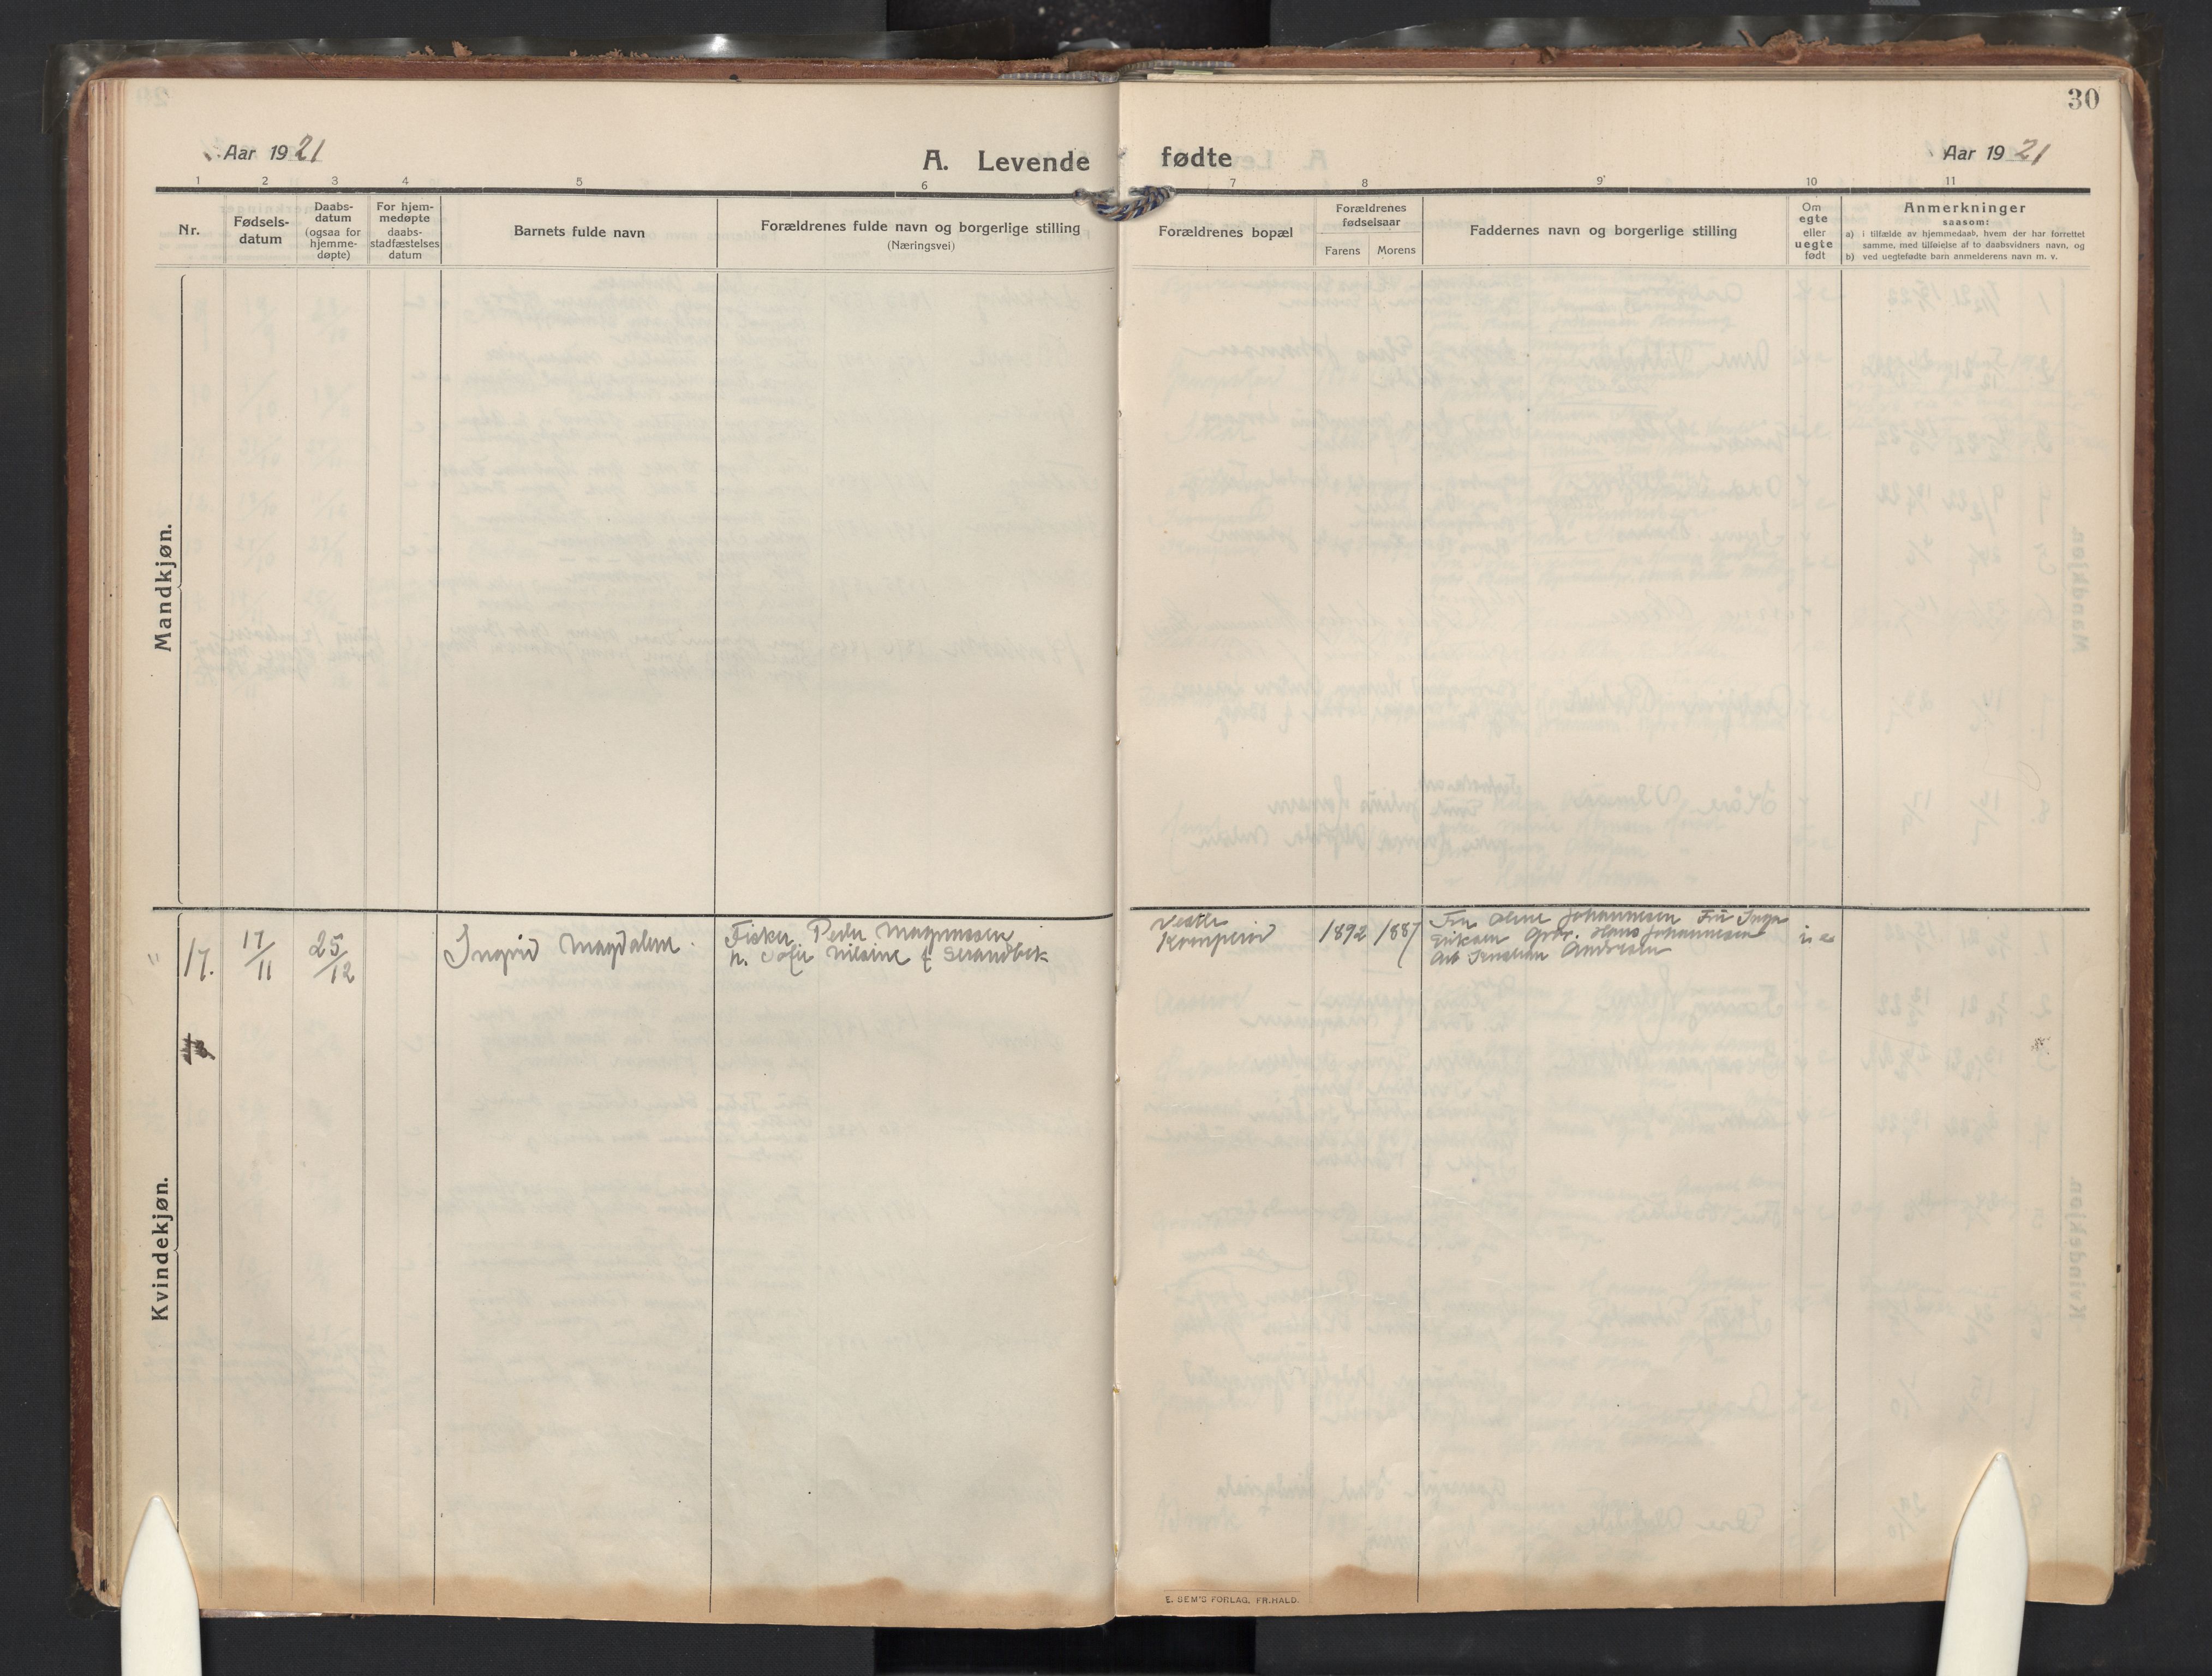 30
Aar 1921
A. Levende fødte
Aar 1921
1 2 3 4 5 6 7 8 9 10 11
Nr.
Fødsels-
datum
Daabs-
datum
(ogsaa for
hjemme-
døpte)
For hjem-
medøpte
daabs-
stadfæstelses
datum
Barnets fulde navn
Forældrenes fulde navn og borgerlige stilling
(Næringsvei)
Forældrenes bopæl
Forældrenes
fødselsaar
Farens Morens
Faddernes navn og borgerlige stilling
Om
egte
eller
uegte
født
Anmerkninger
saasom:
a) i tilfælde av hjemmedaab, hvem der har forrettet
samme, med tilføielse af to daabsvidners navn, og
b) ved uegtefødte barn anmelderens navn m. v.
Mandkjøn.
Kvindekjøn.
17. 17/11 25/12
Ingrid Magdalene.
Fisker Peder Magnussen
h. Sofie Nilsine f Strandbek
Vestle
1892 1887
Fru Oline Johannesen Fru Inga
Eriksen Gbr. Hans Johannesen
Arb Andresen
E. SEM'S FORLAG, FR.HALD.